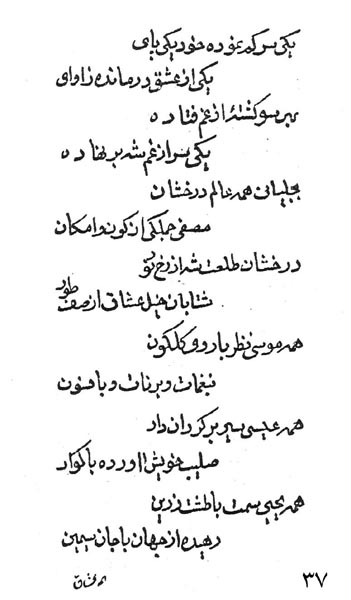 یکی سر کم نموده خود یکی پای
یکی از عشق درمانده ز اوای
بهر سو کشتهٔ از غم فتاده
یکی سر از غم شه بر نهاده
بجلیانی همه عالم درخشان
مصفی جملکی از کون و امکان
درخشان طلعت شه از رخ نور
شتابان خیل عشاق از صف طور
همه موسی نظر با روی کلکون
نغمات و برنات و با فنون
همه عیسی سیر بر کردان دار
صلیب خویش اورده با کوار
همه یحیی سمت با طشت زرین
رهیده از جهان با جان سیمین
۳۷